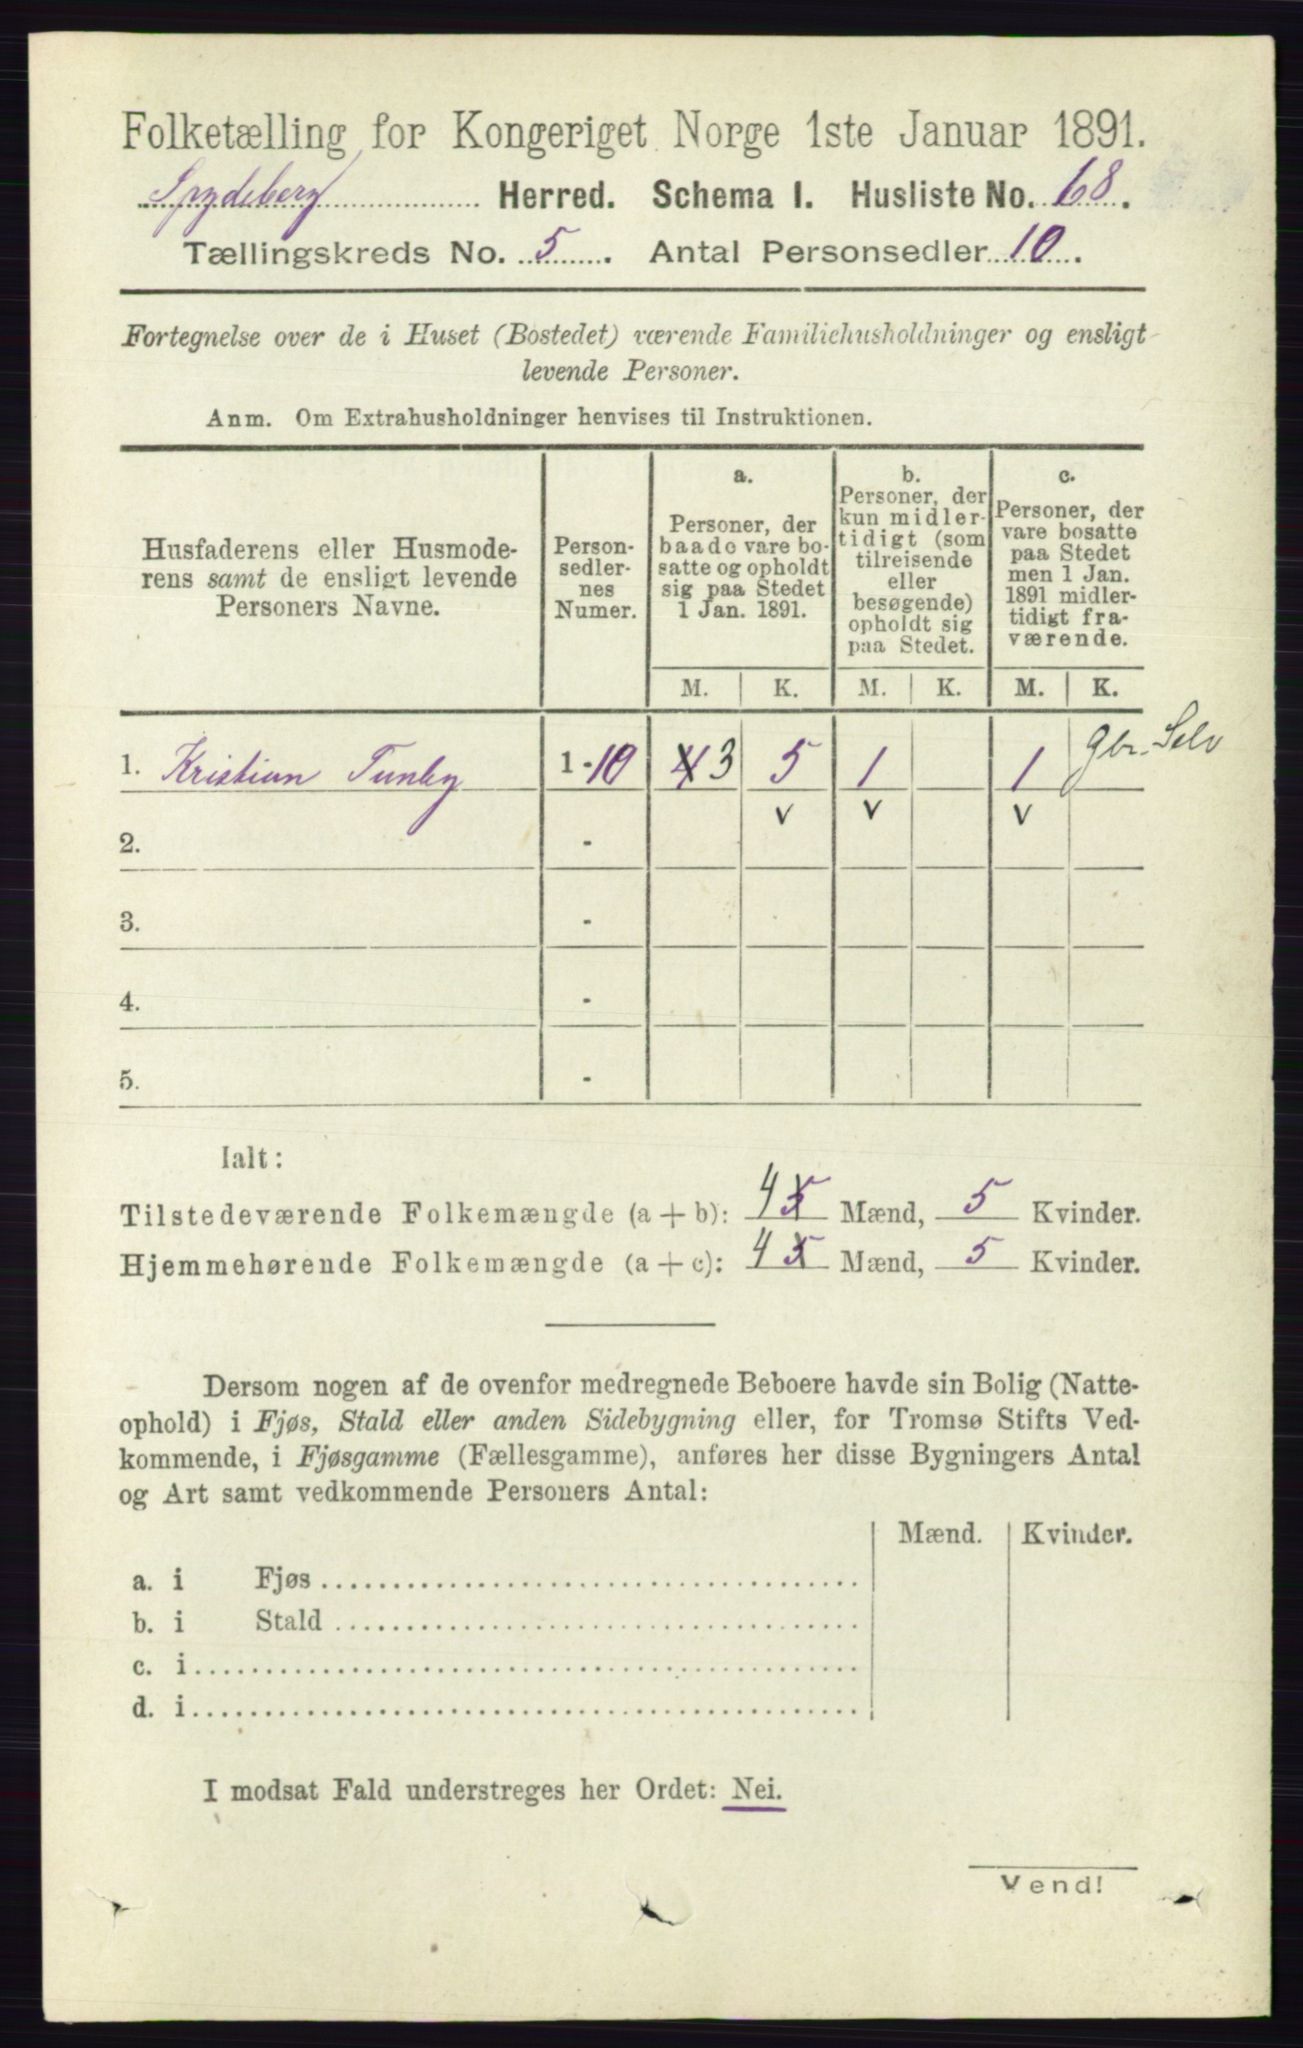 Folketælling for Kongeriget Norge 1ste Januar 1891.
Spydeberg Herred. Schema I. Husliste No. 68.
Tællingskreds No. 5. Antal Personsedler 10.
Fortegnelse over de i Huset (Bostedet) værende Familiehusholdninger og ensligt
levende Personer.
Anm. Om Extrahusholdninger henvises til Instruktionen.
Husfaderens eller Husmode-
rens samt de ensligt levende
Personers Navne.
Person-
sedler-
nes
Numer.
a.
Personer, der
baade vare bo-
satte og opholdt
sig paa Stedet
1 Jan. 1891.
b.
Personer, der
kun midler-
tidigt (som
tilreisende
eller
besøgende)
opholdt sig
paa Stedet.
c.
Personer, der
vare bosatte
paa Stedet
men 1 Jan.
1891 midler-
tidigt fra-
værende.
M. K. M. K. M. K.
1. Kristian Tunby 1-10 4 3 5 1 1 gbr. Selv
v v v
2. -
3. -
4. -
5. -
Ialt:
Tilstedeværende Folkemængde (a + b): 4 5 Mænd, 5 Kvinder.
Hjemmehørende Folkemængde (a + c): 4 5 Mænd, 5 Kvinder.
Dersom nogen af de ovenfor medregnede Beboere havde sin Bolig (Natte-
ophold) i Fjøs, Stald eller anden Sidebygning eller, for Tromsø Stifts Ved-
kommende, i Fjøsgamme (Fællesgamme), anføres her disse Bygningers Antal
og Art samt vedkommende Personers Antal:
Mænd. Kvinder.
a. i Fjøs
b. i Stald
c. i
d. i
I modsat Fald understreges her Ordet: Nei.
Vend!